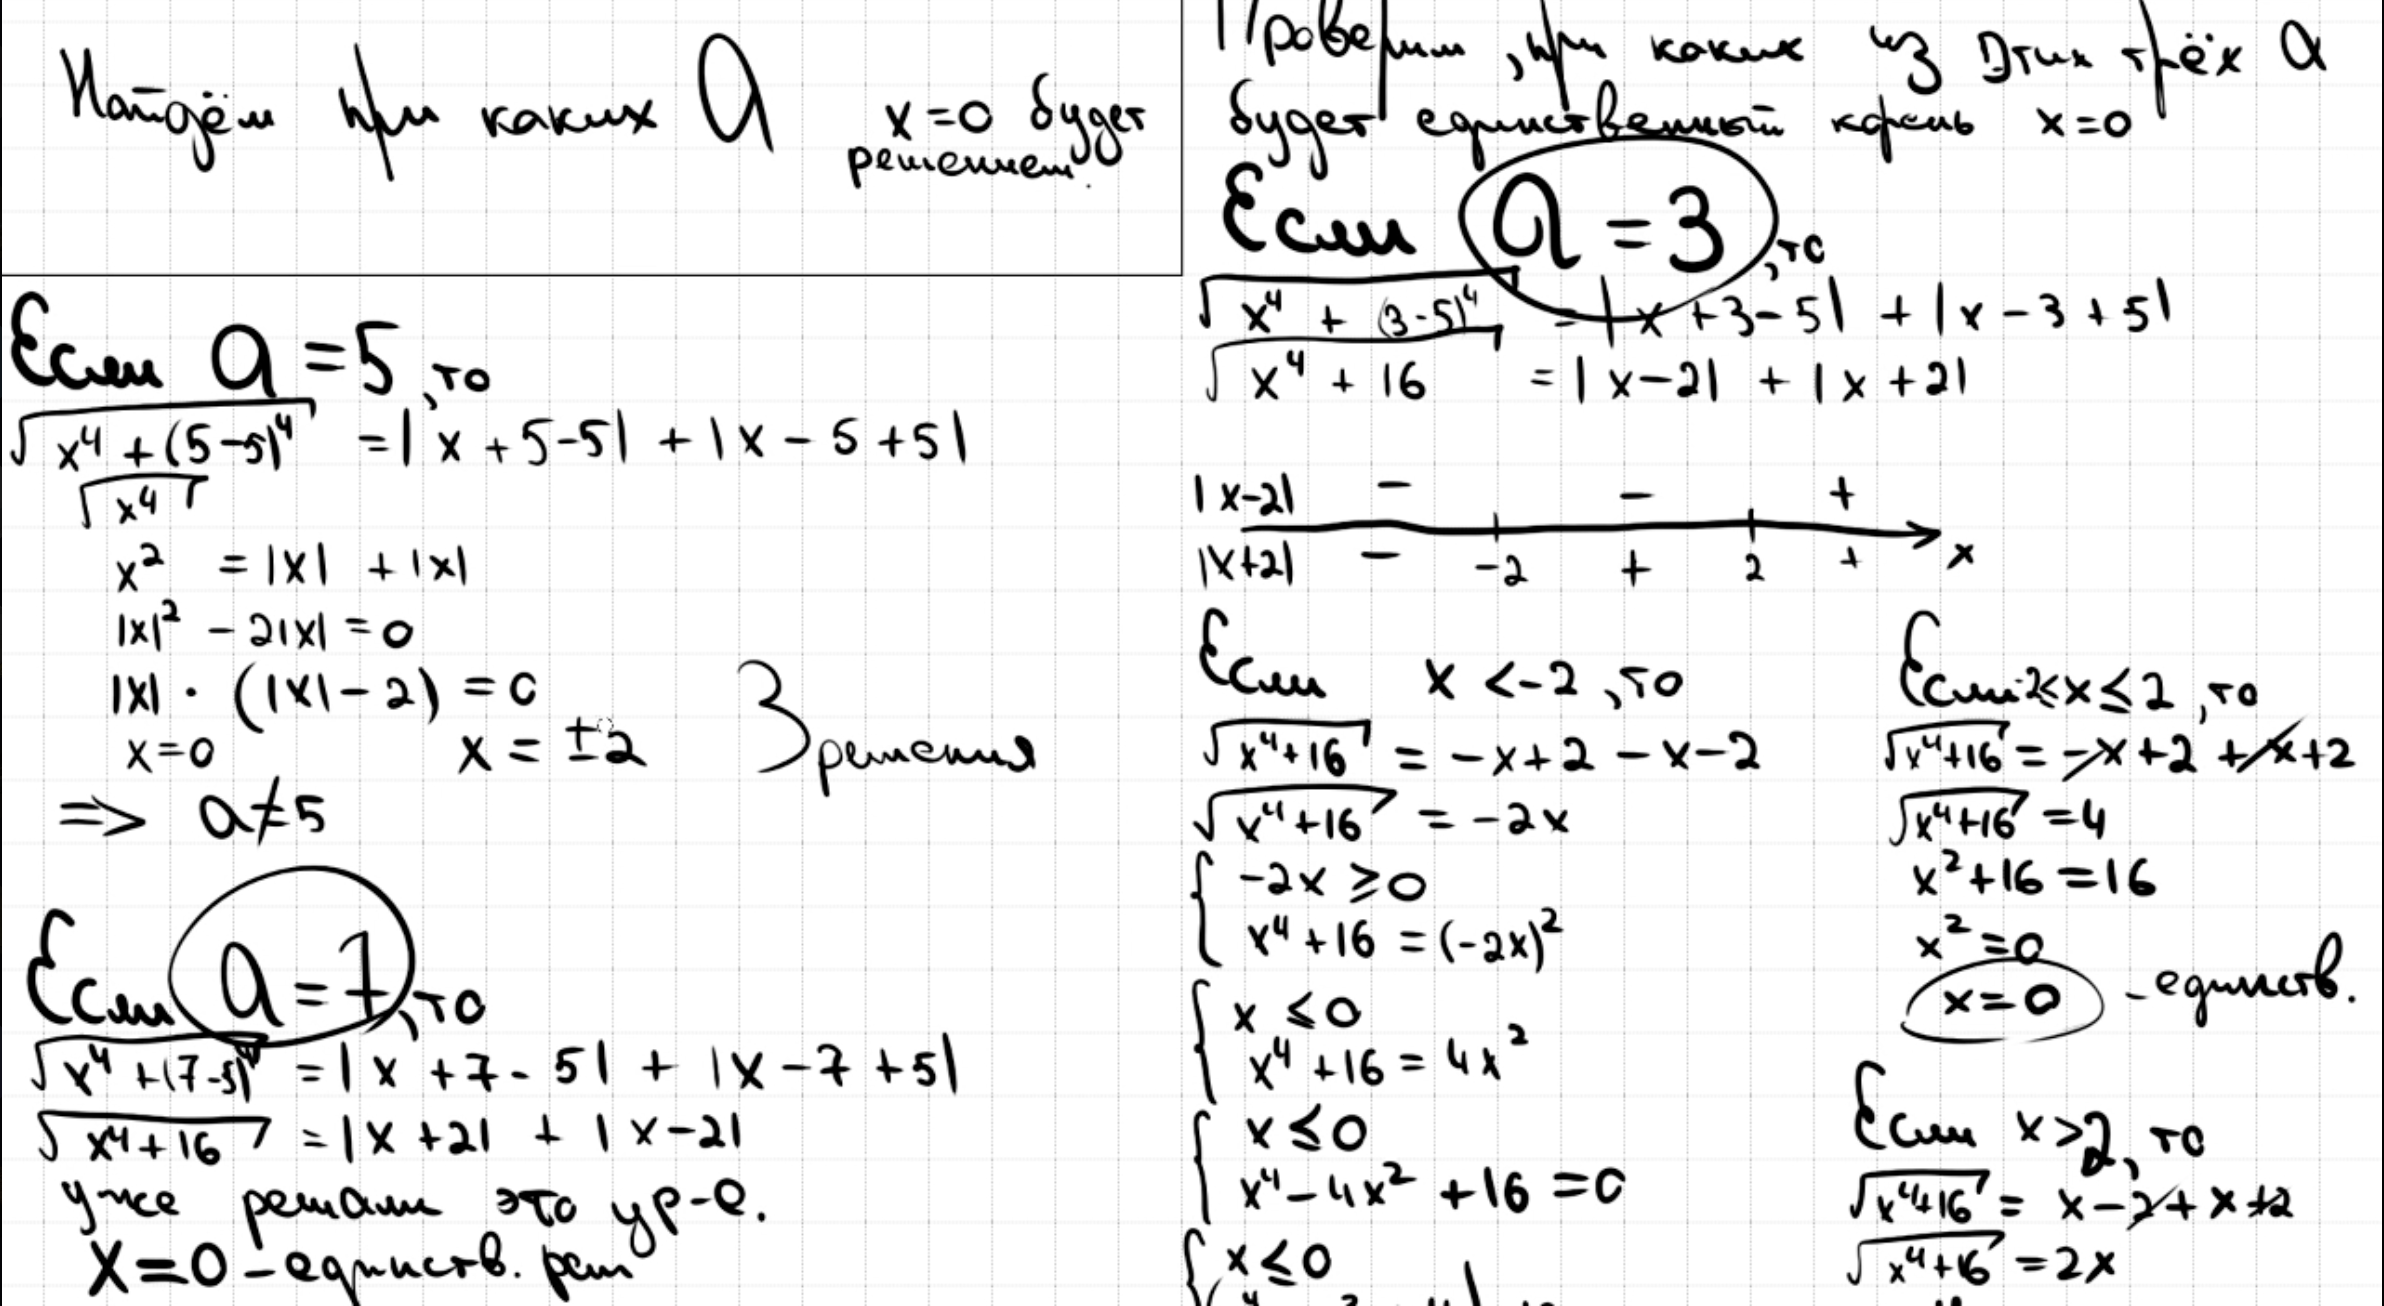 Найдём при каких a x=0 будет
решением.
Если a=5, то
√(x⁴+(5-5)⁴) = |x+5-5| + |x-5+5|
√x⁴
x² = |x| + |x|
|x|² - 2|x| = 0
|x| · (|x|-2) = 0
x=0 x = ±2 3 решения
=> a≠5
Если a=7, то
√(x⁴+(7-5)⁴) = |x+7-5| + |x-7+5|
√(x⁴+16) = |x+2| + |x-2|
уже решали это ур-е.
x=0 - единств. реш
Проверим, при каких из этих трёх a
будет единственный корень x=0
Если a=3, то
√(x⁴+(3-5)⁴) = |x+3-5| + |x-3+5|
√(x⁴+16) = |x-2| + |x+2|
|x-2| - - +
|x+2| - -2 + 2 + x
Если x<-2, то
√(x⁴+16) = -x+2-x-2
√(x⁴+16) = -2x
{ -2x ≥ 0
x⁴+16 = (-2x)²
{ x ≤ 0
x⁴+16 = 4x²
{ x ≤ 0
x⁴-4x²+16 = 0
{ x ≤ 0
Если -2≤x≤2, то
√(x⁴+16) = -x+2+x+2
√(x⁴+16) = 4
x²+16=16
x²=0
x=0 - единств.
Если x>2, то
√(x⁴+16) = x-2+x+2
√(x⁴+16) = 2x